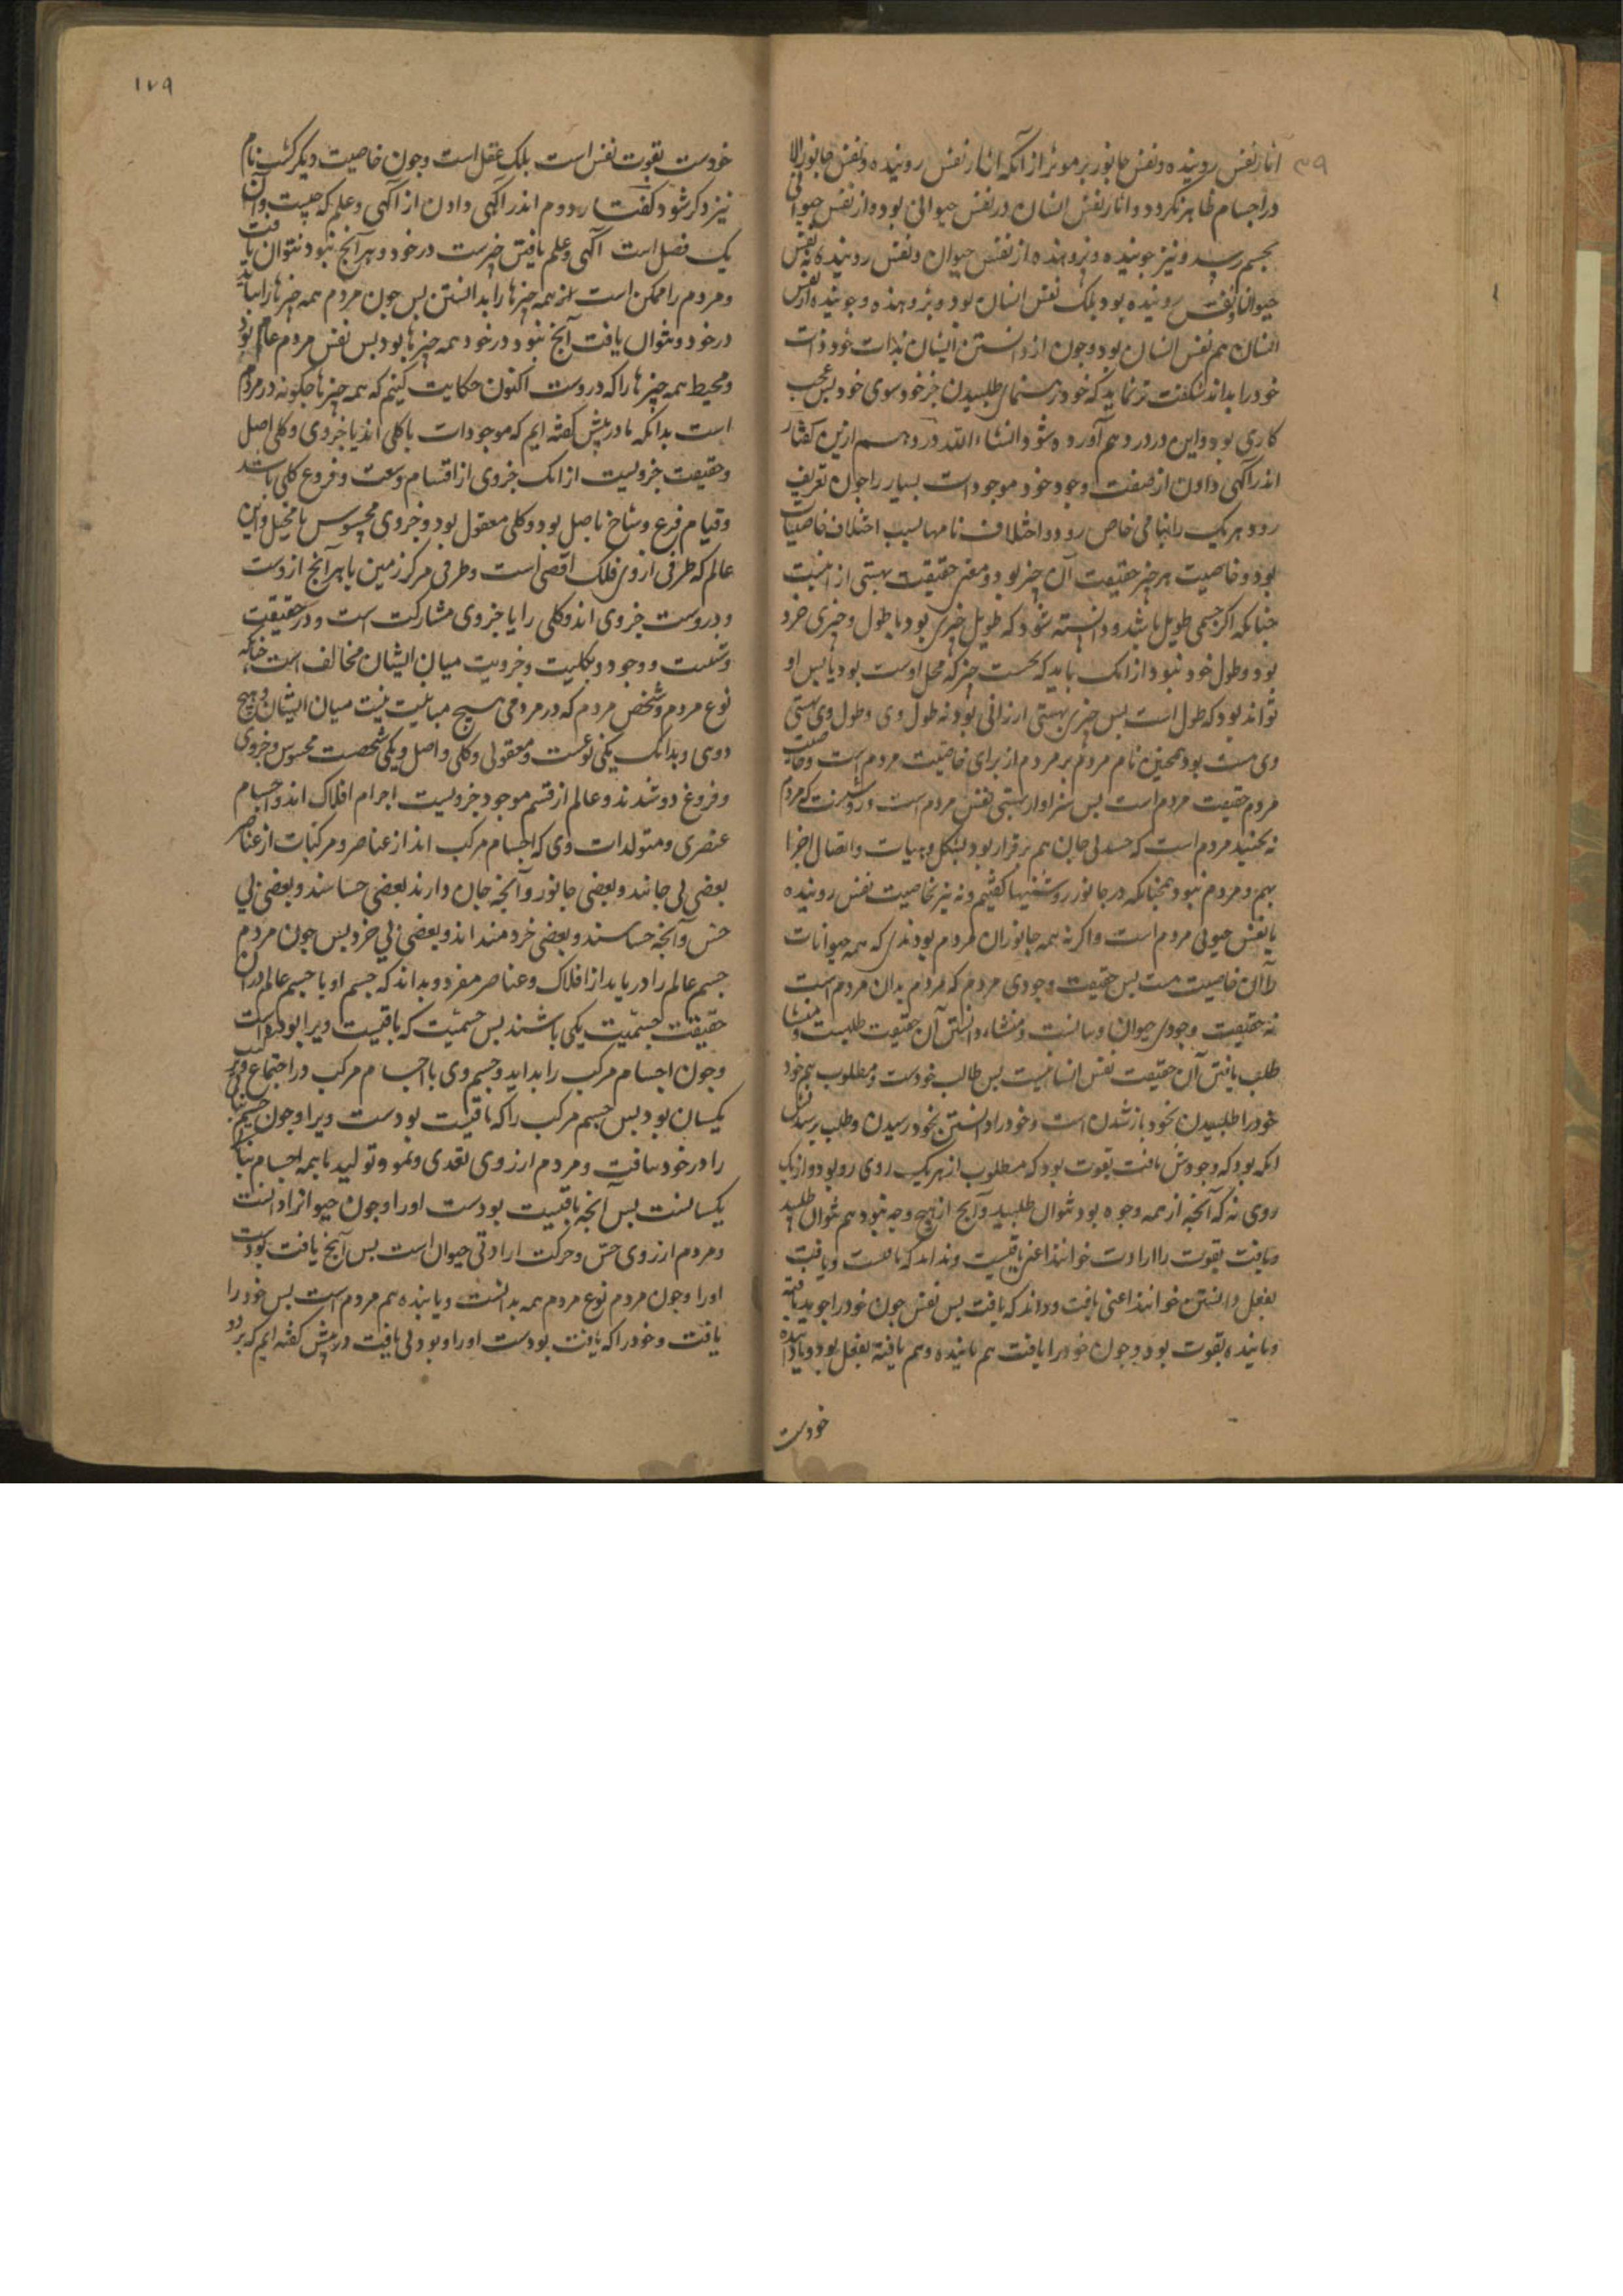 آثار نفس روینده و نفس جانور بر موثر از آنکه آثار نفس روینده و نفس جانور الا
در اجسام ظاهر نکردد و آثار نفس انسان در نفس حیوانی بود و از نفس حیوانی
بجسم رسد و نیز جوینده و پژوهنده از نفس حیوان و نفس روینده نه نفس
روینده بود بلک نفس انسان بود و پژوهنده و جوینده از نفس
انسان هم نفس انسان بود و چون از دانستن ایشان بذات خود ذات
خود را بداند شکفت تر نماید که خود رهنمای طلبیدن جز خود سوی خود بس عجب
کاری بود و این در در دهم آورده شود انشاء الله در دهم ازین کفتار
اندر آکهی دادن از صفت وجود خود موجودات بسیار را چون تعریف
رود هر یک را بنامی خاص رود و اختلاف نامها بسبب اختلاف خاصیات
بود و خاصیت هر چیز حقیقت آن چیز بود و معنی حقیقت هستی
چنانکه اکر جسمی طویل باشد و دانسته شود که طویل چیزی بود با طول و چیزی جزو
بود و طول خود نبود از انک باید که نخست چیز که محل اوست بود تا پس او
تواند بود که طول است پس چیز بهستی ارزانی بود نه طول وی و طول وی بهستی
وی هست بود همچنین نام مردم بر مردم از برای خاصیت مردم است و خاصیت
مردم حقیقت مردم است پس سزاوار بهستی نفس مردم است و روشنست که مردم
نه بجسد مردم است که جسد بی جان هم برقرار بود بشکل و هیات و اتصال اجزا
بهم و مردم نبود همچنانکه در جانور روشنیها کفتیم و نه نیز بخاصیت نفس روینده
یا نفس حیوانی مردم است و اکر نه همه جانوران مردم بودندی که همه حیوانات
را آن خاصیت هست پس حقیقت وجودی مردم که مردم بدان مردم است
نه حقیقت وجودی حیوان و منشاء دانستن آن حقیقت طلبست و منشا
طلب یافتن آن حقیقت نفس انسانیست پس طالب خودست و مطلوب هم خود
خود را طلبیدن بخود باز شدن است و خود را دانستن بخود رسیدن و طلب
انکه بود که وجودش یافت بقوت بود که مطلوب از هر یک روی رو بود و از یک
روی نه که آنچه از همه وجوه بود نتوان طلبید و آنچ از هیچ وجه نبود هم نتوان طلبید
و یافت بقوت را ارادت خوانند اعنی یافتیست و نداند که یافتست و یافت
بفعل دانستن خوانند اعنی یافت و داند که یافت پس نفس چون خود را جوید یافته
و یابنده بقوت بود و چون خود را یافت هم یابنده و هم یافته بفعل بود و یابنده
خودست
۱۷۹
خودست بقوت نفس است بلک عقل است و چون خاصیت دیکر کشت نام
نیز دکر شود کفتار دوم اندر آکهی دادن از آکهی و علم که چیست و آن
یک فصل است آکهی و علم یافتن چیزست در خود و هر آنچ نبود نتوان یافت
و مردم را ممکن است که همه چیزها را بدانستن پس چون مردم همه چیزها را بیابد
در خود و نتوان یافت آنچ نبود در خود همه چیزها بود پس نفس مردم عالم بود
و محیط همه چیزها را که دروست اکنون حکایت کنیم که همه چیزها چکونه در مردم
است بدانکه ما در پیش کفته ایم که موجودات یا کلی اند یا جزوی و کلی اصل
و حقیقت جزویست از انک جزوی از اقسام و فروع کلی باشد
و قیام فرع و شاخ باصل بود و کلی معقول بود و جزوی محسوس یا مخیل و این
عالم که طرفی از وی فلک اقصی است و طرفی مرکز زمین با هر آنچ ازوست
و دروست جزوی اند و کلی را با جزوی مشارکت است و در حقیقت
و وجود و بکلیت و جزویت میان ایشان مخالف است چنانکه
نوع مردم و شخص مردم که در مردمی هیچ مباینت نیست میان ایشان و هیچ
دوی و بدانک یکی نوعست و معقولی و کلی و اصل و یکی شخصست محسوس و جزوی
و فروع دو شدند و عالم از قسم موجود جزویست اجرام افلاک اند و اجسام
عنصری و متولدات وی که اجسام مرکب اند از عناصر و مرکبات از عناصر
بعضی بی جانند و بعضی جانور و آنچه جان دارند بعضی حساسند و بعضی بی
حس و آنچه حساسند و بعضی خردمند اند و بعضی بی خرد پس چون مردم
جسم عالم را دریابد از افلاک و عناصر مفرد و بداند که جسم او با جسم عالم در آن
حقیقت جسمیت یکی باشند پس جسمیت که یافتیست ویرا بودست
و چون اجسام مرکب را بداند و جسم وی با اجسام مرکب در اجتماع و ترکیب
یکسان بود پس جسم مرکب را که یافتیست بودست ویرا و چون جسم نبات
را در خود بیافت و مردم از روی تغذی و نمو و تولید با همه اجسام نبات
یکسانست پس آنچه یافتیست بودست او را و چون حیوانرا دانست
و مردم از روی حس و حرکت ارادتی حیوان است پس آنچ یافت بودست
او را و چون مردم نوع مردم همه بدانست و یابنده هم مردم است پس خود را
یافت و خود را که یافت بودست او را و بود بی یافت در پیش کفته ایم که